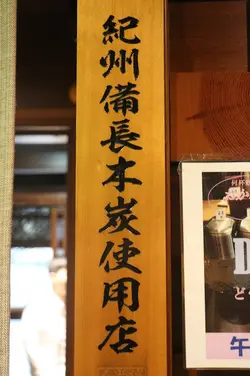 紀州備長木炭使用店
午